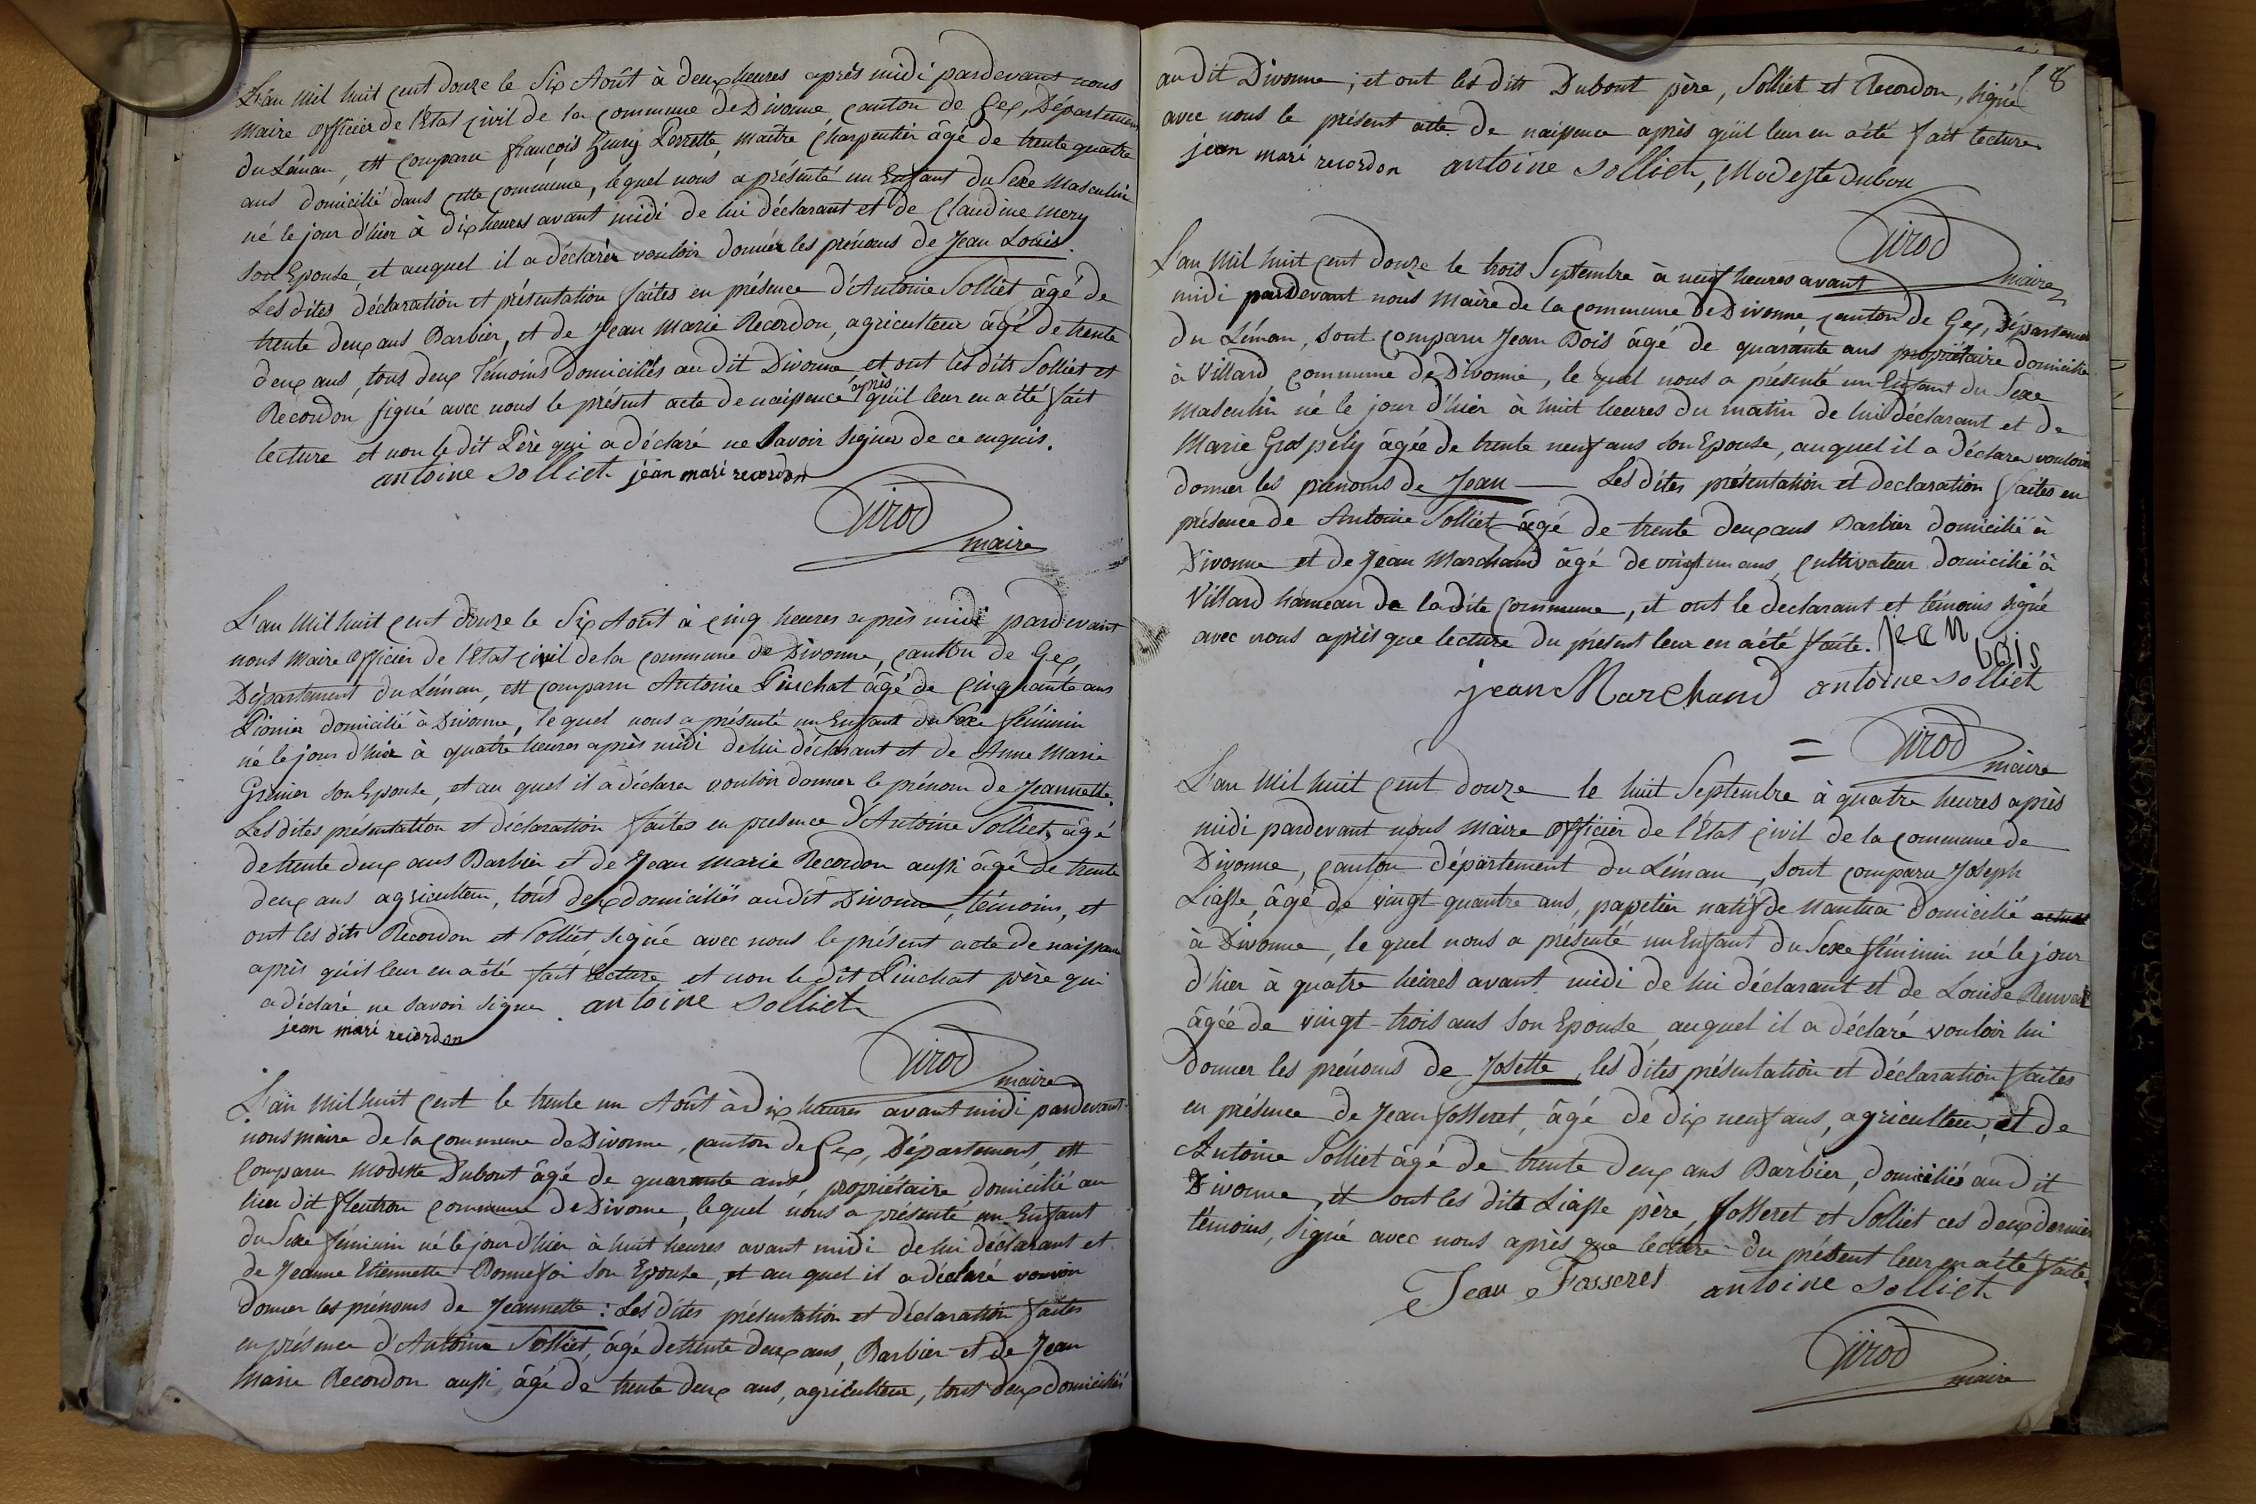 L'an mil huit cent douze le Six Août à deux heures après midi pardevant nous
maire officier de l'Etat civil de la commune de Divonne, canton de Gex, Département
du Léman, est comparu françois henry Lorrette, maitre Charpentier âgé de trente quatre
ans domicilié dans cette commune, lequel nous a présenté un Enfant du Sexe Masculin
né le jour d'hier à dix heures avant midi de lui déclarant et de Claudine mery
son Epouse, et auquel il a déclaré vouloir donner les prénoms de Jean Louis.
Les dites déclaration et présentation faites en présence d'Antoine Solliet âgé de
trente deux ans Barbier, et de Jean Marie Recordon, agriculteur âgé de trente
deux ans, tous deux témoins domiciliés au dit Divonne et ont les dits Solliet et
Recordon signé avec nous le présent acte de naissance après qu'il leur en a été fait
lecture et non le dit Père qui a déclaré ne Savoir Signer de ce enquis.
antoine solliet jean mari recordon
Girod
maire
L'an Mil huit cent douze le Six Août à cinq heures après midi pardevant
nous Maire Officier de l'Etat civil de la commune de Divonne, canton de Gex,
Département du Léman, est comparu Antoine Pinchat âgé de cinquante ans
Pionier domicilié à Divonne, lequel nous a présenté un Enfant du Sexe féminin
né le jour d'hier à quatre heures après midi de lui déclarant et de Anne Marie
Grenier son Epouse, et au quel il a déclaré vouloir donner le prénom de Jeannette.
Les dites présentation et déclaration faites en presence d'Antoine Solliet âgé
de trente deux ans Barbier et de Jean Marie Recordon aussi âgé de trente
deux ans agriculteur, tous deux domiciliés au dit Divonne, témoins, et
ont les dits Recordon et Solliet signé avec nous le présent acte de naissance
après qu'il leur en a été fait lecture et non le dit Pinchat père qui
a déclaré ne savoir signer. antoine solliet
jean mari recordon
Girod
maire
L'an mil huit cent le trente un Août à dix heures avant midi pardevant
nous maire de la commune de Divonne, canton de Gex, Département est
comparu Modeste Dubout âgé de quarante ans, propriétaire domicilié au
lieu dit fleutron commune de Divonne, lequel nous a présenté un Enfant
du Sexe féminin né le jour d'hier à huit heures avant midi de lui déclarant et
de Jeanne Etiennette Bonnefoi son Epouse, et au quel il a déclaré vouloir
donner les prénoms de Jeannette : Les dites présentation et déclaration faites
en présence d'Antoine Solliet, âgé de trente deux ans, Barbier et de Jean
Marie Recordon aussi âgé de trente deux ans, agriculteur, tous deux domiciliés
8
au dit Divonne, et ont les dits Dubout père, Solliet et Recordon, signé
avec nous le présent acte de naissance après qu'il leur en a été fait lecture
jean mari recordon antoine solliet, Modeste dubou
Girod
maire
L'an Mil huit cent douze le trois Septembre à neuf heures avant
midi pardevant nous Maire de la commune de Divonne, canton de Gex, Département
du Léman, sont comparu Jean Bois âgé de quarante ans propriétaire domicilié
à Villard commune de Divonne, le quel nous a présenté un Enfant du Sexe
Masculin né le jour d'hier à huit heures du matin de lui déclarant et de
Marie Grospely âgée de trente neuf ans son Epouse, auquel il a déclaré vouloir
donner les prenoms de Jean — Les dites présentation et declaration faites en
présence de Antoine Solliet âgé de trente deux ans Barbier domicilié à
Divonne et de Jean Marchand âgé de vingt un ans, cultivateur domicilié à
Villard hameau de la dite Commune, et ont le declarant et témoins signé
avec nous après que lecture du présent leur en a été faite. jean
bois
jean Marchand antoine solliet
= Girod
maire
L'an Mil huit cent douze le huit Septembre à quatre heures après
midi pardevant nous Maire Officier de l'Etat civil de la commune de
Divonne, canton département du Léman, sont comparu Joseph
Liasse, âgé de vingt quantre ans, papetier natif de Nantua domicilié
à Divonne, le quel nous a présenté un Enfant du Sexe féminin né le jour
d'hier à quatre heures avant midi de lui déclarant et de Louise
âgée de vingt-trois ans son Epouse, auquel il a déclaré vouloir lui
donner les prénoms de Josette, les dites présentation et déclaration faites
en présence de Jean fosseret, âgé de dix neuf ans, agriculteur, et de
Antoine Solliet âgé de trente deux ans Barbier, domiciliés au dit
Divonne, et ont les dits Liasse père, fosseret et Solliet ces deux derniers
témoins, signé avec nous après que lecture du présent leur en a été faite.
Jean Fosseret antoine solliet
Girod
maire